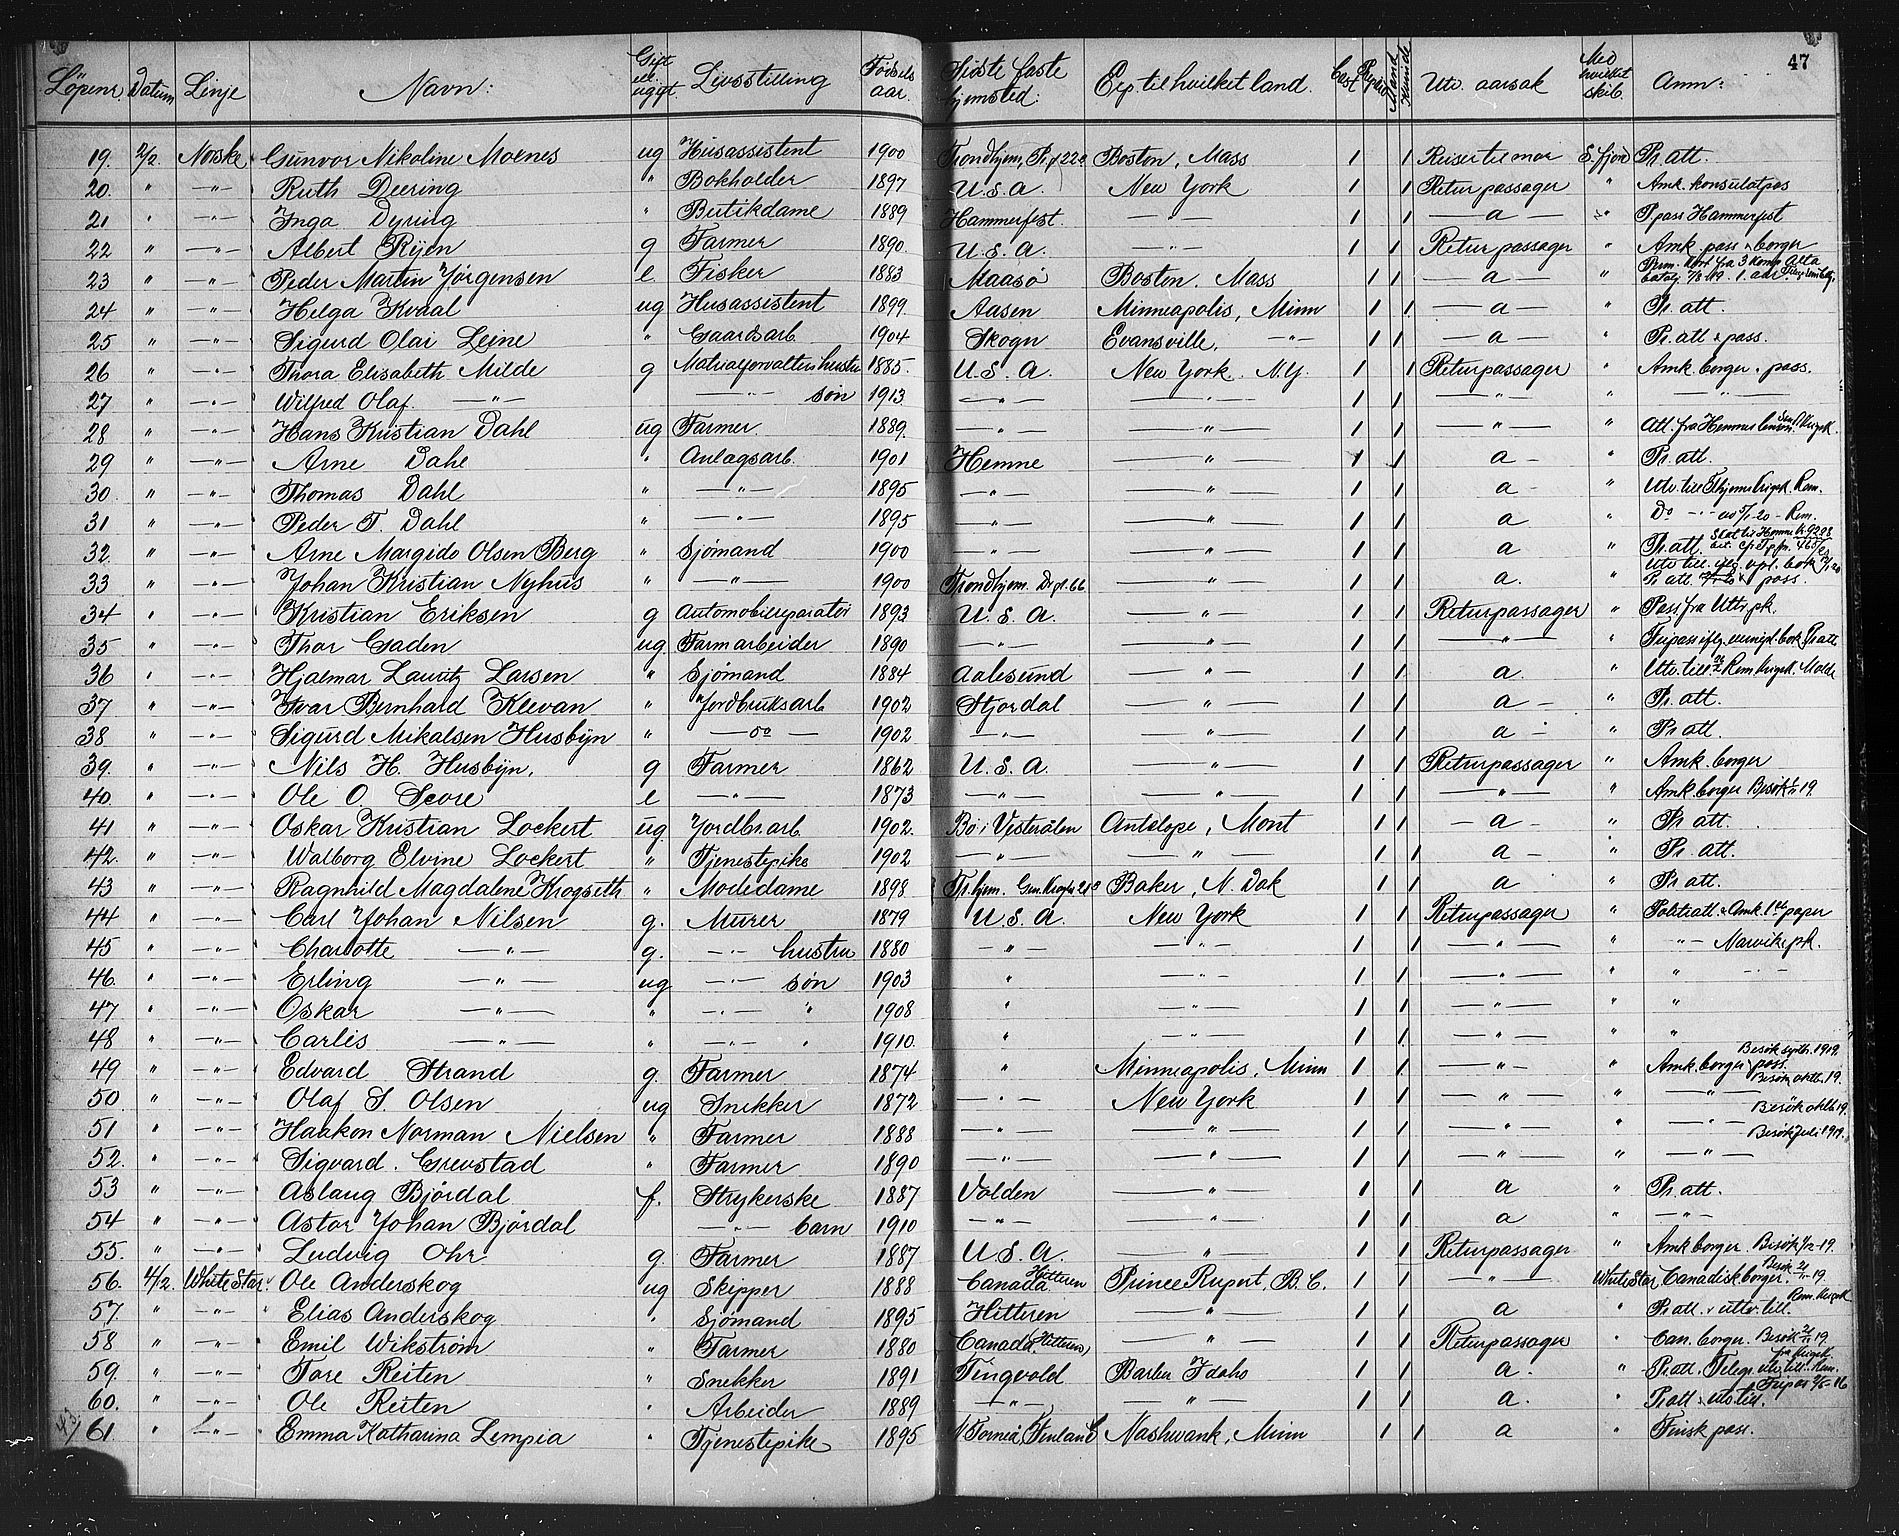 47
Löpenr. Datum Linje Navn: Gift el. ugift. Livsstilling Födsels aar. Sidste faste hjemsted: Exp. til hvilket land. Mænd Kvinde Utv. aarsak Med hvilket skib. Anm:
19. 2/2 Norske Gunvor Nikoline Moenes ug Husassistent 1900 Trondhjem, Boston, Mass 1 1 Reiser til mor S. fjord Pr. att.
20. " —"— Ruth Deering " Bokholder 1897 U.S.A. New York 1 1 Returpassager " Amk. konsulatpas
21 " —"— Inga Dyring " Butikdame 1889 Hammerfest —"— 1 1 — a — " Pass Hammerfest
22 " —"— Albert Ryen g Farmer 1890 U.S.A. —"— 1 1 Returpassager " Amk. pass & borger
23 " —"— Peder Martin Jörgensen e. Fisker 1883 Maasö Boston. Mass 1 1 — a — " fra 3 komp Alta 1. aar
24 " —"— Helga Kvaal ug Husassistent 1899. Aasen Minneapolis, Minn 1 1 — a — " Pr. att.
25 " —"— Sigurd Olai Leine " Gaardsarb. 1904 Skogn Evansville, —"— 1 1 — a — " Pr. att & pass.
26 " —"— Thora Elisabeth Milde g hustru 1885. U.S.A. New York. N.Y. 1 1 Returpassager " Amk. borger & pass.
27 " —"— Wilfred Olaf —"— —"— søn 1913 —"— —"— 1 1 —"— " —"—
28 " —"— Hans Kristian Dahl ug Farmer 1889. —"— —"— 1 1 —"— " Att. fra Hemnes
29 " —"— Arne Dahl " Anlagsarb. 1901 Hemne —"— 1 1 a — " Pr. att.
30 " —"— Thomas Dahl " —"— 1895 —"— —"— 1 1 a — " Utv. till Thjems Rem.
31 " —"— Peder T. Dahl " —"— 1895 —"— —"— 1 1 a " Do —"— Rem.
32. " —"— Arne Margido Olsen Berg " Sjömand 1900 —"— —"— 1 1 a " Pr. att.
33 " —"— Johan Kristian Nyhus " —"— 1900 Trondhjem. 66 —"— 1 1 a. " Utv till. Pr att. pass.
34 " —"— Kristian Eriksen g Automobilreparatör 1893 U.S.A. —"— 1 1 Returpassager " Pass fra
35 " —"— Thor Gaden ug Farmarbeider 1890 —"— —"— 1 1 —"— "
36 " —"— Hjalmar Lauritz Larsen " Sjömand 1884 Aalesund —"— 1 1 a " Utv. till Rem Molde
37 " —"— Ivar Bernhard Klevan " Jordbruksarb 1902 Stjordal —"— 1 1 a — " Pr. att.
38 " —"— Sigurd Mikalsen Husbyn " — do — 1902 —"— —"— 1 1 a — " Pr att.
39. " —"— Nils H. Husbyn. g Farmer 1862 U.S.A. —"— 1 1 Returpassager " Amk. borger
40. " —"— Ole O. Score e —"— 1873 —"— —"— 1 1 —"— " Amk. borger Besök 19.
41 " —"— Oskar Kristian Lockert ug Jordbr.arb 1902. Bö i Vesterålen Antelope, Mont 1 1 — a — " Pr. att.
42. " —"— Walborg Elvine Lockert " Tjenestepike 1902 —"— —"— 1 1 a — " Pr. att.
43 " —"— Ragnhild Magdalene Krogseth " Modedame 1898 Tr.hjem. Baker, N. Dak 1 1 a " Pr att.
44 " —"— Carl Johan Nilsen g. Murer 1879 U.S.A. New York 1 1 Returpassager " Politiatt. & Amk. 1st paper
45 " —"— Charlotte —"— g. —"— hustru 1880 —"— —"— 1 1 —"— " —"— Narvik pk.
46. " —"— Erling —"— ug —"— søn 1903 " —"— 1 1 —"— " " —"—
47 " —"— Oskar —"— " —"— " 1908 " —"— 1 1 —"— " "
48 " —"— Carlis —"— " —"— " 1910. " —"— 1 1 —"— " "
49 " —"— Edvard Strand g. Farmer 1874 " Minneapolis, Minn 1 1 —"— " Amk. borger pass. Besök septb. 1919.
50. " —"— Olaf S. Olsen ug Snekker 1872 —"— New York 1 1 —"— " —"— Besök oktb. 19.
51 " —"— Haakon Norman Nielsen " Farmer 1888 —"— —"— 1 1 —"— " —"— Besök oktb 19.
52. " —"— Sigvard. Grevstad " Farmer 1890 —"— —"— 1 1 —"— " —"— Besök Juli 1919.
53 " —"— Aslaug Bjørdal f. Strykerske 1887 Volden —"— 1 1 a " Pr. att.
54 " —"— Astor Johan Bjørdal —"— barn 1910 —"— —"— 1 1 a " —"—
55. " —"— Ludvig Ohr g. Farmer 1887 U.S.A. —"— 1 1 Returpassager " Amk borger. Besök 1/2-19.
56. 4/2. White Star. Ole Anderskog ug Skipper 1888 Canada Hitteren Prince Rupert, B.C. 1 1 —"— White Star Canadisk borger. Besök 19
57. " —"— Elias Anderskog " Sjömand 1895 Hitteren —"— 1 1 a " Pr. att. & utv. till.
58 " —"— Emil Wikström " Farmer 1880 Canada (Hitteren) —"— 1 1 Returpassager " Can. borger. Besök 19
59. " —"— Tore Reiten " Snekker 1891 Tingvold Barlen Idaho 1 1 a. " Pr. att. Telegr utv. till. Rem.
60. " —"— Ole Reiten " Arbeider 1889 —"— —"— 1 1 a. " Pr att & utv till.
61 " —"— Emma Katharina Lempia " Tjenestepike 1895 Torneå, Finland Nashwank, Minn 1 1 a " Finsk pass.